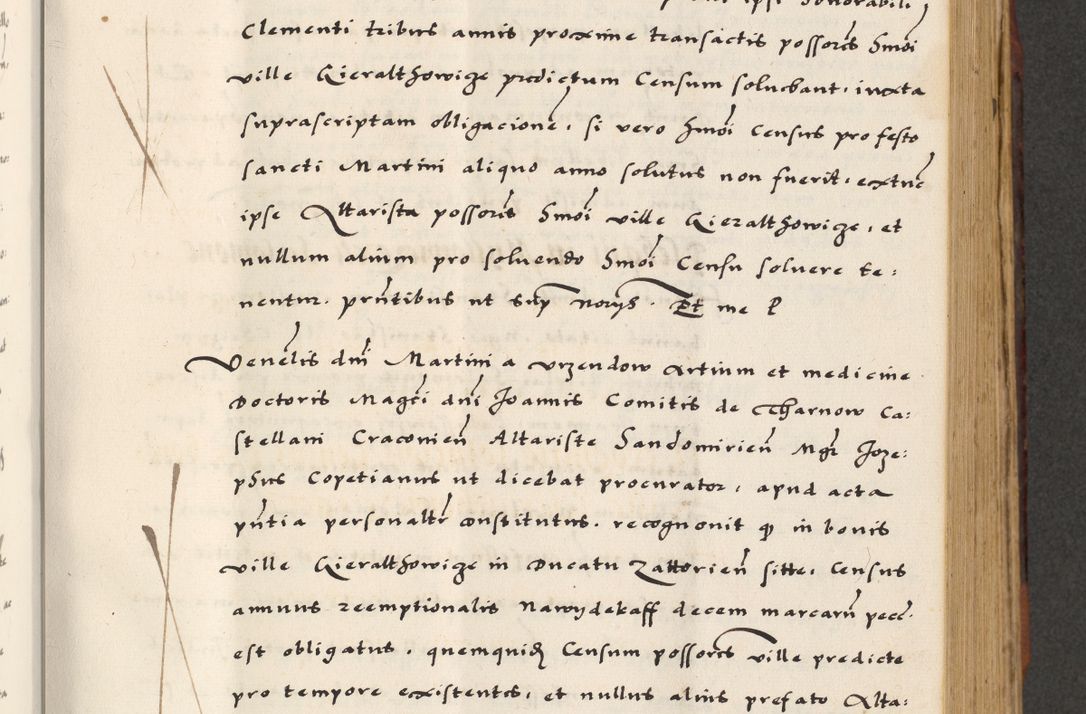 ipsi honorabili
Clementi tribus annis proxime transactis possores hmoi
ville Gieralthowicze predictum Censum soluebant, iuxta
suprascriptam obligacione, si vero hmoi Census pro festo
sancti Martini aliquo anno solutus non fuerit, extunc
ipse Altarista possores hmoi ville Gieralthowicze, et
nullum alium pro soluendo hmoi Censu soluere te:
nentur. pntibus ut sup norys. Et me P
Venelis dni Martini a vrzendow Artium et medicine
Doctoris Magci dni Joannis Comitis de Tharnow Ca:
stellani Cracovien Altariste Sandomirien Mgr Joze:
phus Copetianus ut dicebat procurator, apud acta
pntia personaltr constitutus. recognouit q in bonis
ville Gieralthowicze in Ducatu Zattorien sitte, Census
annuus reemptionalis Nawydekaff decem marcarum pecc.
est obligatus. quemquid Censum possores ville predicte
pro tempore existentes, et nullus alius prefato Alta: